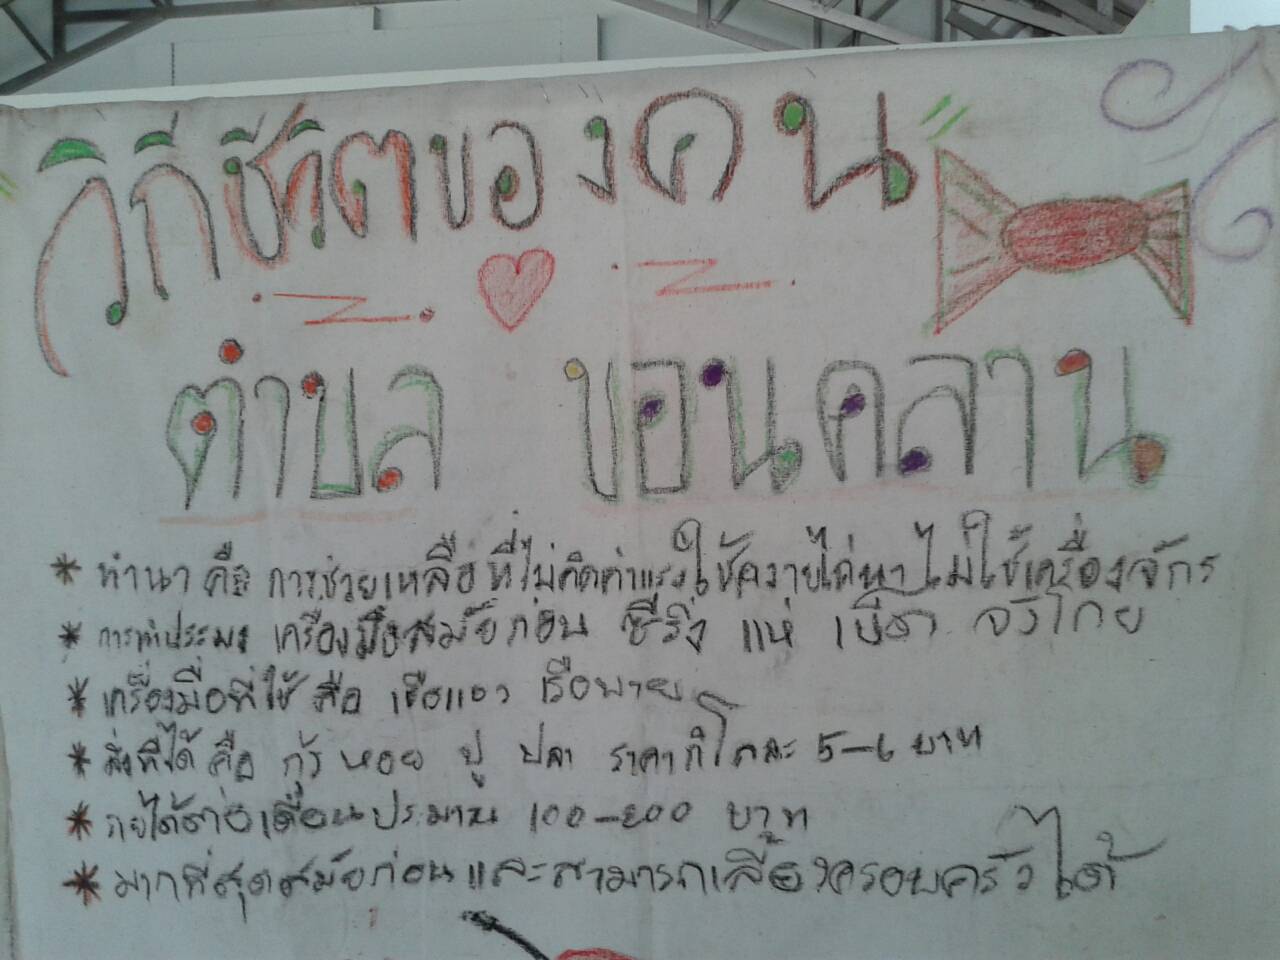 วิถีชีวิตของคน
ตำบล ขอนคลาน
* ทำนา คือ การช่วยเหลือที่ไม่คิดค่าแรง ใช้ควายไถนา ไม่ใช้เครื่องจักร
* การทำประมง เครื่องมือสมัยก่อน แห่
* เครื่องมือที่ใช้ คือ เรือแจว เรือพาย
* สิ่งที่ได้ คือ กุ้ง หอย ปู ปลา ราคากิโลละ 5-6 บาท
* รายได้ต่อเดือนประมาน 100-200 บาท
* มากที่สุดสมัยก่อนและสามารถเลี้ยงครอบครัวได้